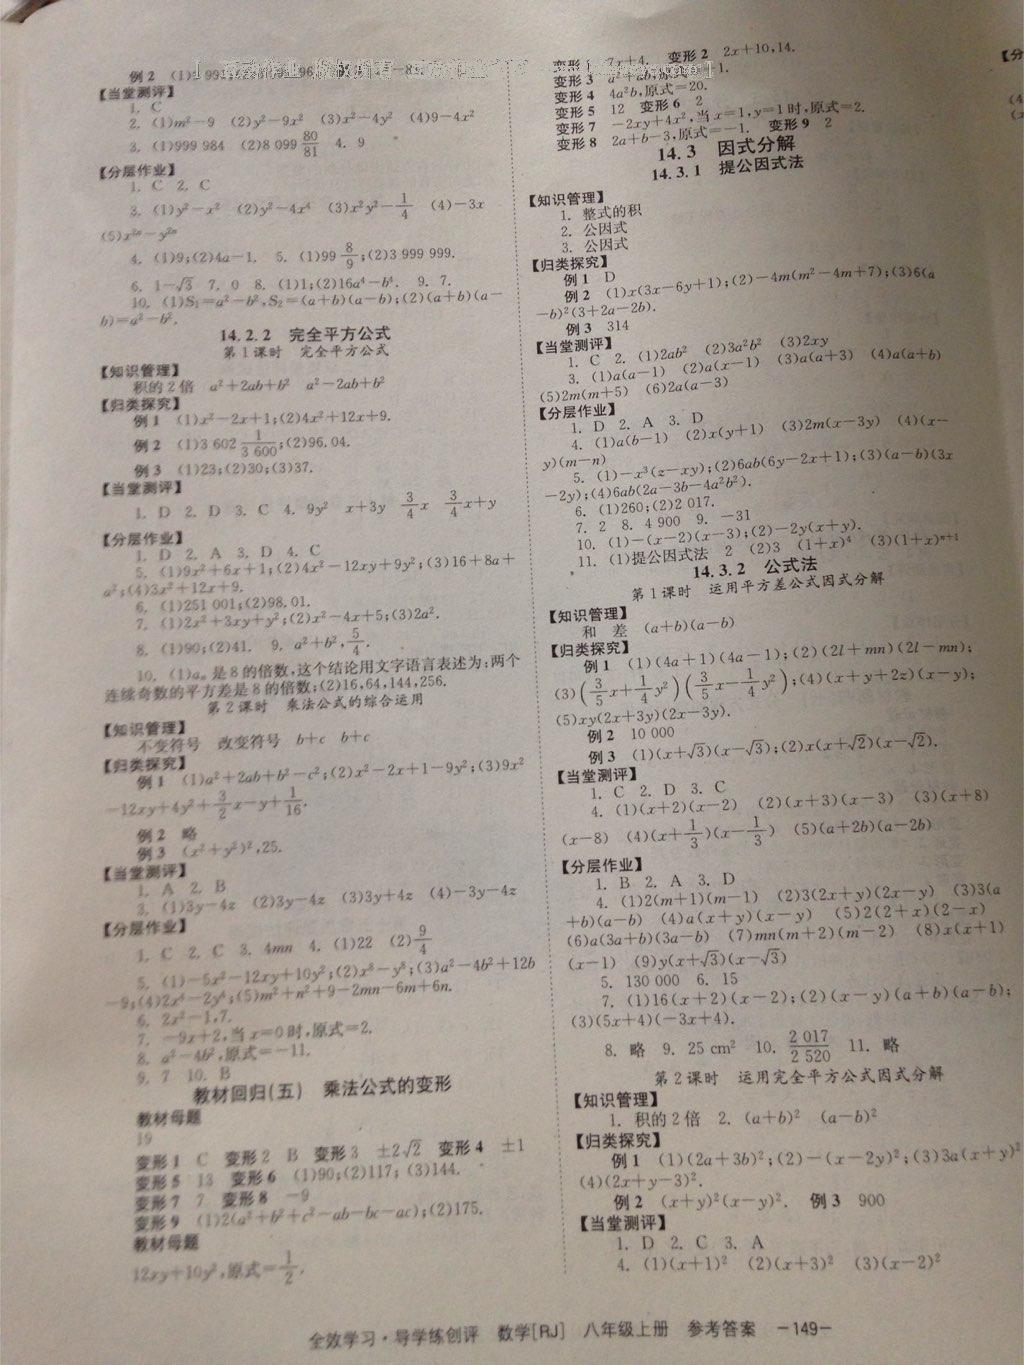 【当堂测评】
1. C
2. (1)m²-9 (2)y²-9x² (3)x²-4y² (4)9-4x²
3. (1)999 984 (2)8 099 80/81 4. 9
【分层作业】
1. C 2. C
3. (1)y²-x² (2)y²-4x⁴ (3)x²y²-1/4 (4)-3x
(5)x²ⁿ-y²ⁿ
4. (1)9;(2)4a-1. 5. (1)99 8/9;(2)3 999 999.
6. 1-√3 7. 0 8. (1)1;(2)16a⁴-b⁴. 9. 7.
10. (1)S₁=a²-b²,S₂=(a+b)(a-b);(2)(a+b)(a-
b)=a²-b².
14.2.2 完全平方公式
第1课时 完全平方公式
【知识管理】
积的2倍 a²+2ab+b² a²-2ab+b²
【归类探究】
例1 (1)x²-2x+1;(2)4x²+12x+9.
例2 (1)3 602 1/3 600;(2)96.04.
例3 (1)23;(2)30;(3)37.
【当堂测评】
1. D 2. D 3. C 4. 9y² x+3y 3/4x 3/4x+y
【分层作业】
1. D 2. A 3. D 4. C
5. (1)9x²+6x+1;(2)4x²-12xy+9y²;(3)16+8a+
a²;(4)3x²+12x+9.
6. (1)251 001;(2)98.01.
7. (1)2x²+3xy+y²;(2)x²-4x+5;(3)2a².
8. (1)90;(2)41. 9. a²+b²,5/4.
10. (1)aₙ是8的倍数,这个结论用文字语言表述为:两个
连续奇数的平方差是8的倍数;(2)16,64,144,256.
第2课时 乘法公式的综合运用
【知识管理】
不变符号 改变符号 b+c b+c
【归类探究】
例1 (1)a²+2ab+b²-c²;(2)x²-2x+1-9y²;(3)9x²
-12xy+4y²+3/2x-y+1/16.
例2 略
例3 (x²+y²)²,25.
【当堂测评】
1. A 2. B
3. (1)3y-4z (2)3y-4z (3)3y+4z (4)-3y-4z
【分层作业】
1. C 2. C 3. 4mn 4. (1)22 (2)9/4
5. (1)-5x²-12xy+10y²;(2)x⁸-y⁸;(3)a²-4b²+12b
-9;(4)2x⁴-2y⁴;(5)m²+n²+9-2mn-6m+6n.
6. 2x²-1,7.
7. -9x+2,当x=0时,原式=2.
8. a²-4b²,原式=-11.
9. 7 10. B
教材回归(五) 乘法公式的变形
教材母题
19
变形1 C 变形2 B 变形3 ±2√2 变形4 ±1
变形5 13 变形6 (1)90;(2)117;(3)144.
变形7 7 变形8 -9
变形9 (1)2(a²+b²+c²-ab-bc-ac);(2)175.
教材母题
12xy+10y²,原式=1/2.
变形1 7x+4. 变形2 2x+10,14.
变形4 4a²b,原式=20.
变形5 12 变形6 2
变形7 -2xy+4x²,当x=1,y=1时,原式=2.
变形8 2a+b-3,原式=-1. 变形9 2
14.3 因式分解
14.3.1 提公因式法
【知识管理】
1. 整式的积
2. 公因式
3. 公因式
【归类探究】
例1 D
例2 (1)x(3x-6y+1);(2)-4m(m²-4m+7);(3)6(a
-b)²(3+2a-2b).
例3 314
【当堂测评】
1. C 2. (1)2ab² (2)3a²b² (3)2xy
3. (1)a(a-1) (2)a(x-1) (3)a(a+3) (4)a(a+b)
(5)2m(m+5) (6)2a(a-3)
【分层作业】
1. D 2. A 3. D
4. (1)a(b-1) (2)x(y+1) (3)2m(x-3y) (4)(x-
y)(m-n)
5. (1)-x³(z-xy);(2)6ab(6y-2x+1);(3)(a-b)(3x
-2y);(4)6ab(2a-3b-4a²b²).
6. (1)260;(2)2 017.
7. 2 8. 4 900 9. -31
10. (1)-(x-2)(x-3);(2)-2y(x+y).
11. (1)提公因式法 2 (2)3 (1+x)⁴ (3)(1+x)ⁿ⁺¹
14.3.2 公式法
第1课时 运用平方差公式因式分解
【知识管理】
和 差 (a+b)(a-b)
【归类探究】
例1 (1)(4a+1)(4a-1);(2)(2l+mn)(2l-mn);
(3)(3/5x+1/4y²)(3/5x-1/4y²);(4)(x+y+2z)(x-y);
(5)xy(2x+3y)(2x-3y).
例2 10 000
例3 (1)(x+√3)(x-√3);(2)x(x+√2)(x-√2).
【当堂测评】
1. C 2. D 3. C
4. (1)(x+2)(x-2) (2)(x+3)(x-3) (3)(x+8)
(x-8) (4)(x+1/3)(x-1/3) (5)(a+2b)(a-2b)
【分层作业】
1. B 2. A 3. D
4. (1)2(m+1)(m-1) (2)3(2x+y)(2x-y) (3)3(a
+b)(a-b) (4)a(x+y)(x-y) (5)2(2+x)(2-x)
(6)a(3a+b)(3a-b) (7)mn(m+2)(m-2) (8)x(x+1)
(x-1) (9)y(x+√3)(x-√3)
5. 130 000 6. 15
7. (1)16(x+2)(x-2);(2)(x-y)(a+b)(a-b);
(3)(5x+4)(-3x+4).
8. 略 9. 25 cm² 10. 2 017/2 520 11. 略
第2课时 运用完全平方公式因式分解
【知识管理】
1. 积的2倍 2. (a+b)² (a-b)²
【归类探究】
例1 (1)(2a+3b)²;(2)-(x-2y)²;(3)3a(x+y)²
(4)(2x+y-3)².
例2 (x+y)²(x-y)². 例3 900
【当堂测评】
1. D 2. C 3. A
4. (1)(x+1)² (2)(x+3)² (3)(x-2)²
全效学习·导学练创评 数学[RJ] 八年级上册 参考答案 -149-